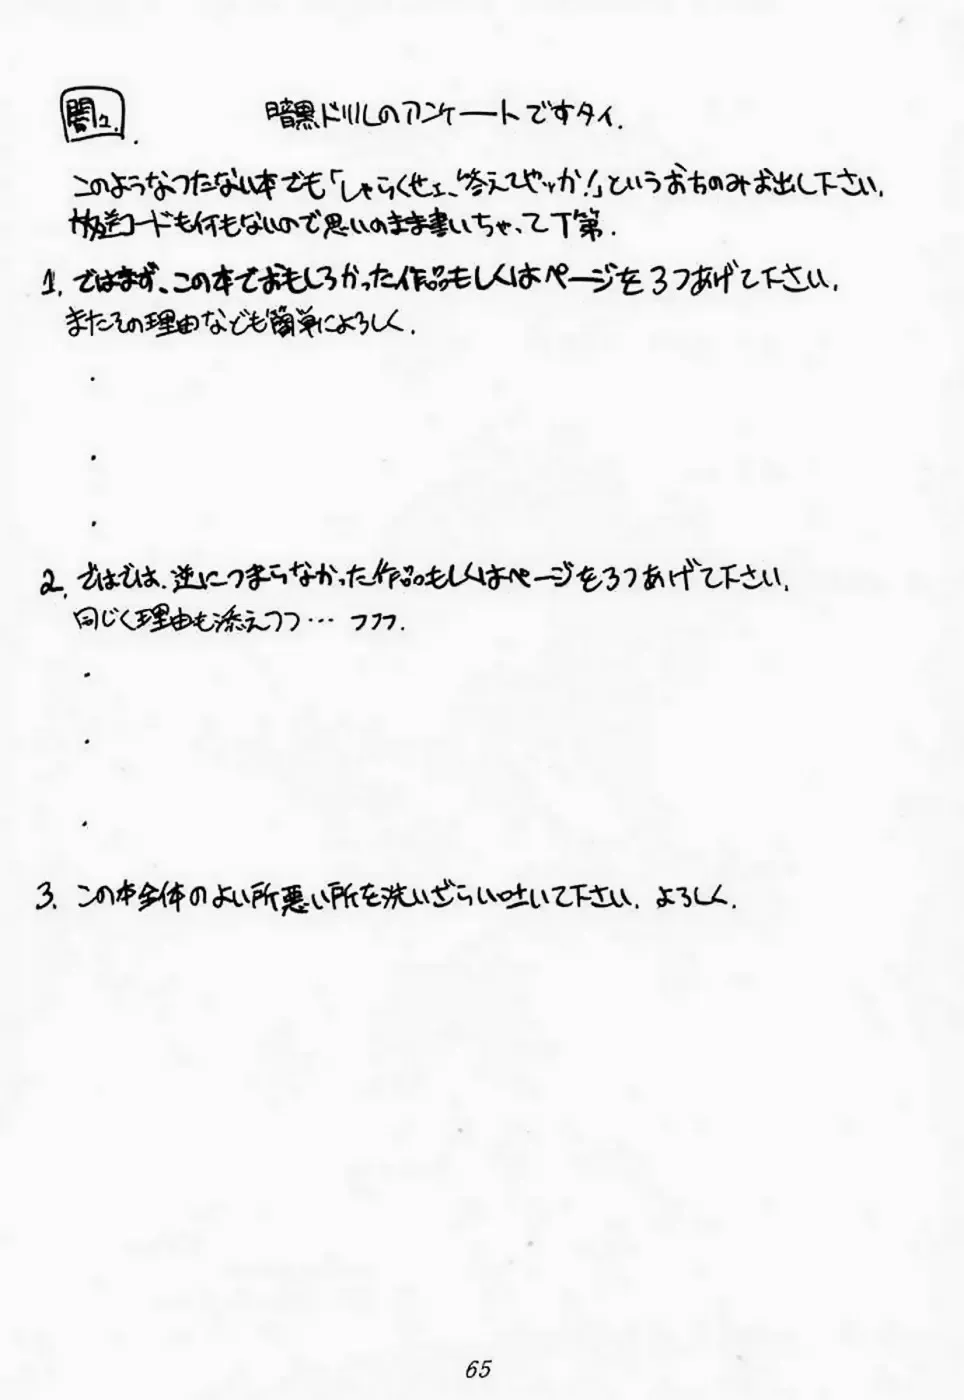 闇2.
暗黒ドリルのアンケートですタイ.
このようなつたない本でも「しゃらくせェ、答えてやッか!」というおちのみお出し下さい.
放送コードも何もないので思いのまま書いちゃって下第.
1. ではまず、この本でおもしろかった作品もしくはページを3つあげて下さい.
またその理由なども簡単によろしく.
・
・
・
2. ではでは、逆につまらなかった作品もしくはページを3つあげて下さい.
同じく理由も添えつつ… フフフ.
・
・
・
3. この本全体のよい所悪い所を洗いざらい吐いて下さい. よろしく.
65